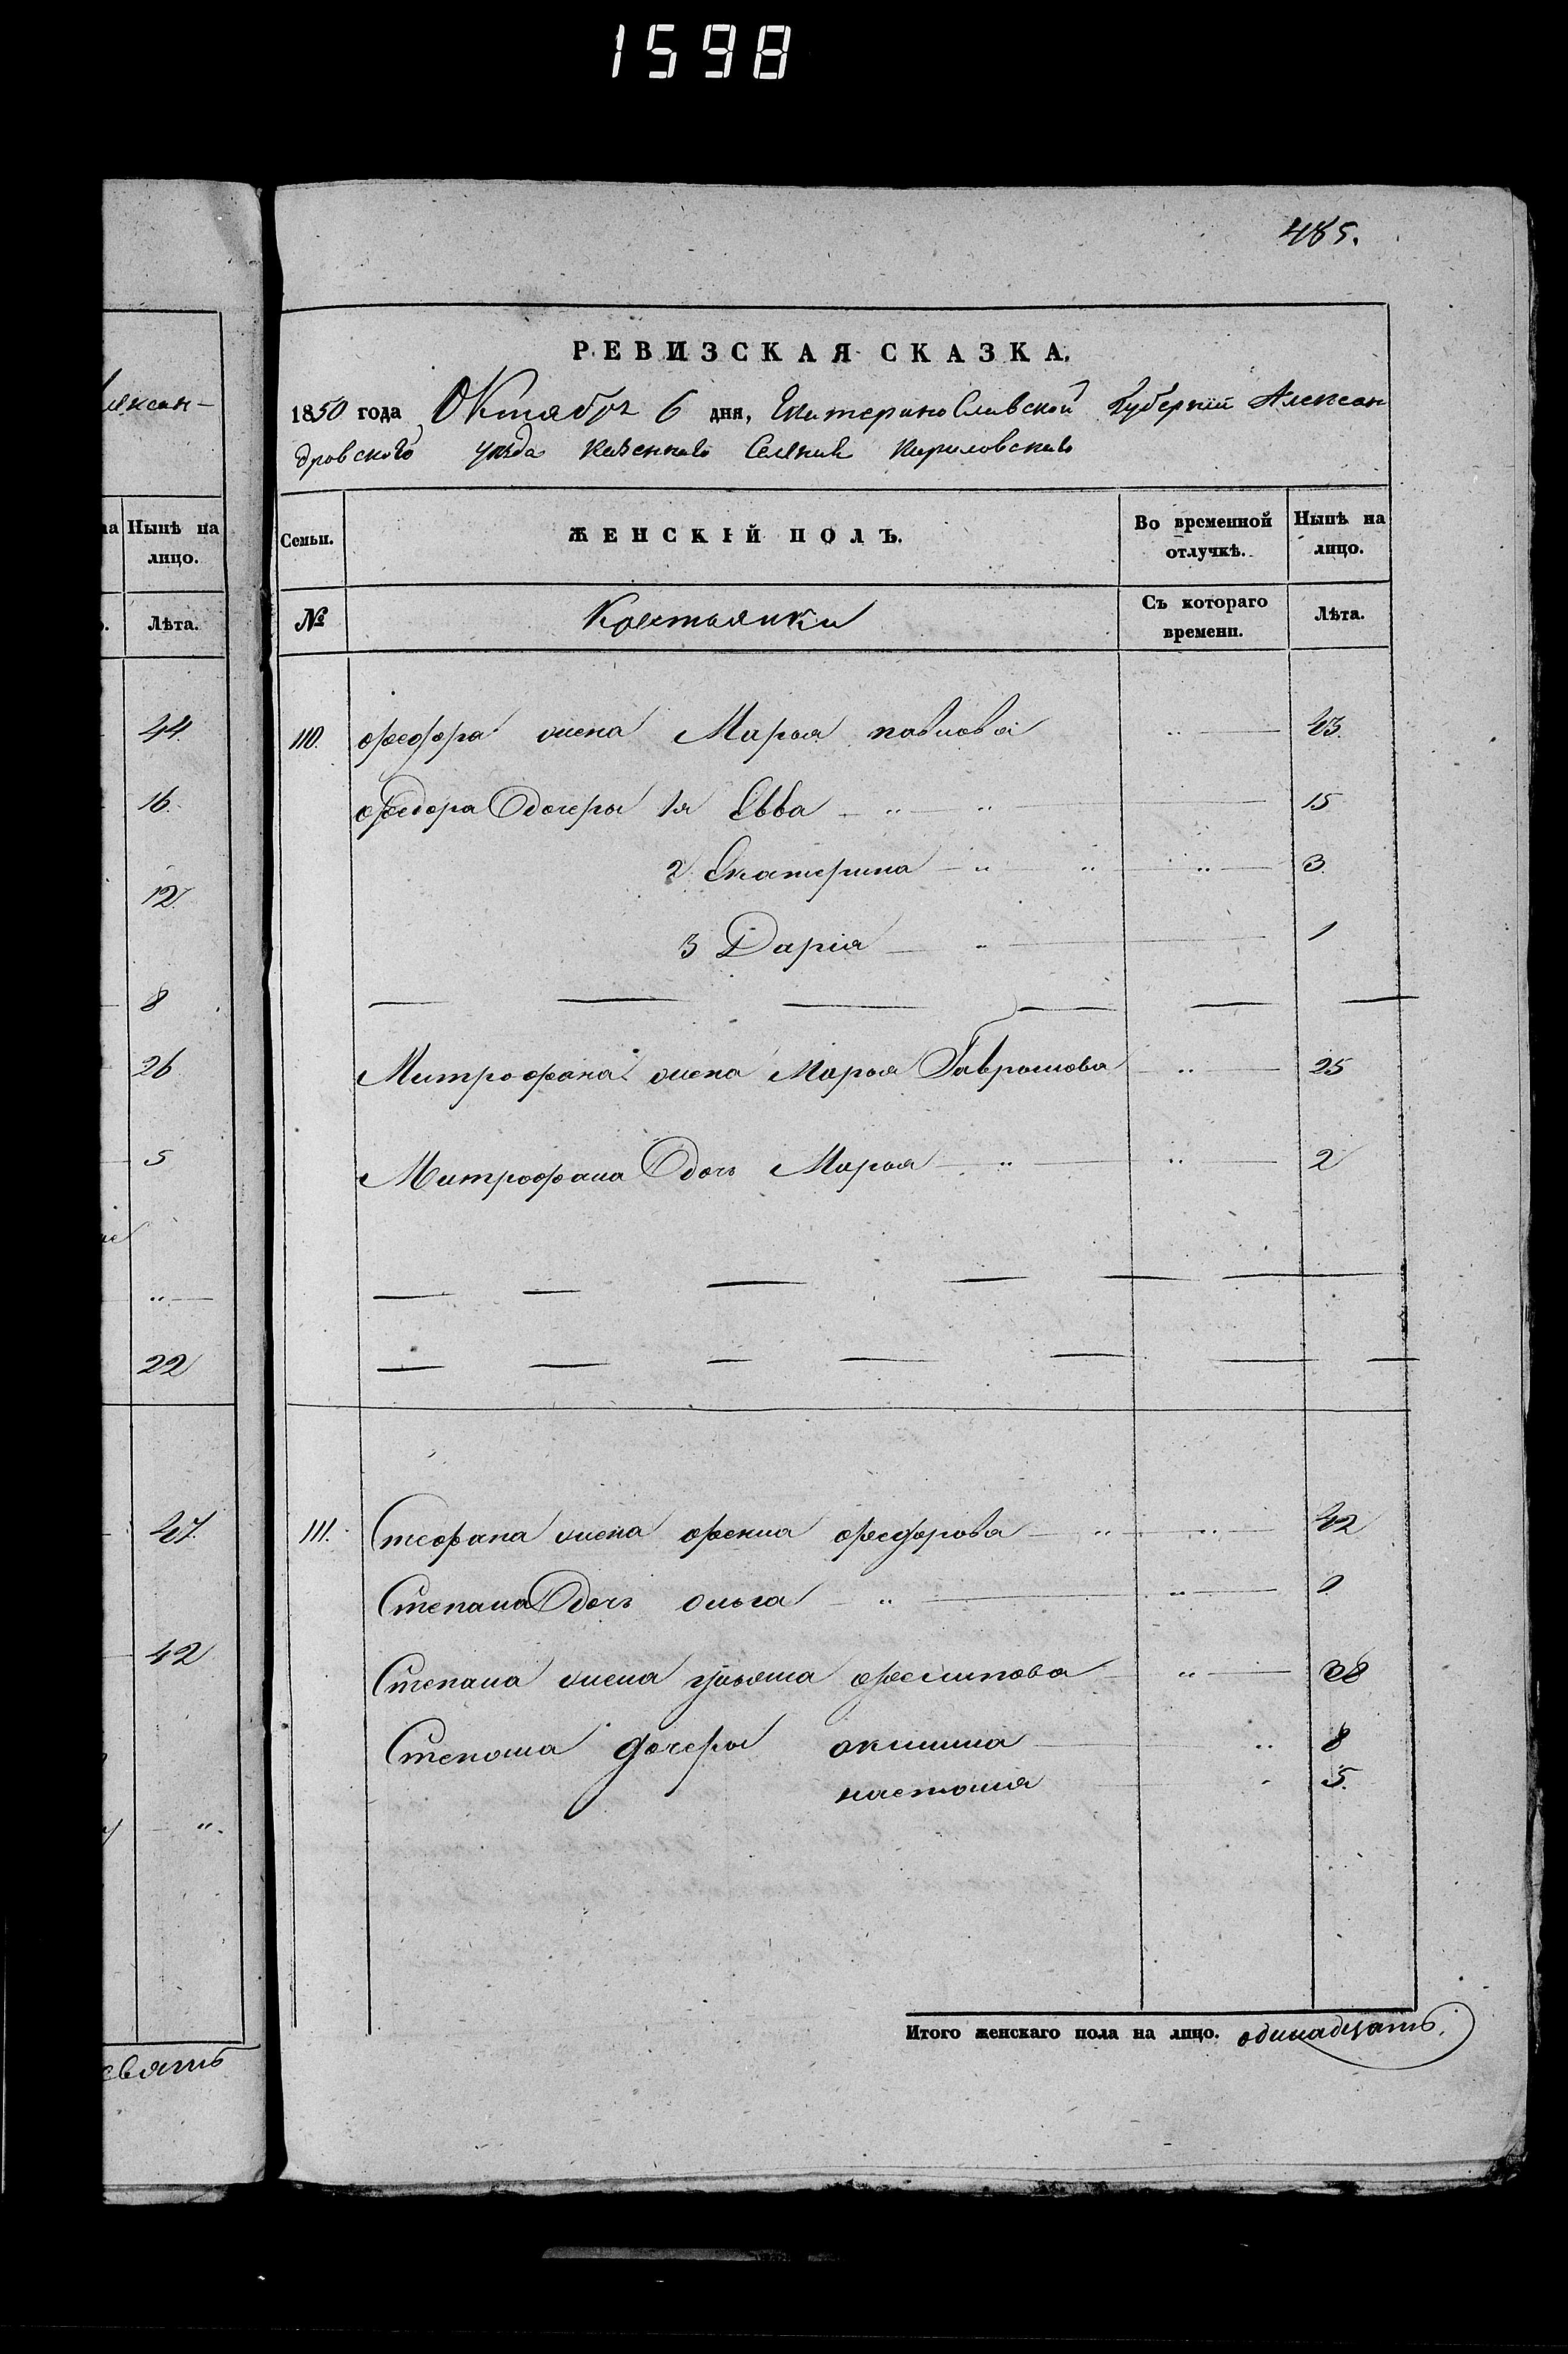 1598
485.
лексан-
РЕВИЗСКАЯ СКАЗКА.
1850 года Октября 6 дня, Екатеринославской Губерніи Алексан
дровского уѣзда Казенного Селения Кириловского
на Ныпѣ на лицо.
Семьи. ЖЕНСКІЙ ПОЛЪ. Во временной отлучкѣ. Ныпѣ на лицо.
Лѣта.
№ Крестьянки Съ котораго времени. Лѣта.
44.
16.
12.
8
26
5
22
47.
42
евять
110. Федора жена Марья павлова 43.
Федора Дочери 1я Евва 15
2 Екатерина 3.
3 Дарія 1
Митрофана жена Марья Гаврилова 25
Митрофана Дочь Марья 2
111. Стефана жена фекла федорова 42
Степана Дочь ольга
Степана жена ульяна филипова 38
Степана дочери акилина 8
настасия 5.
Итого женскаго пола на лицо. одинадцать.